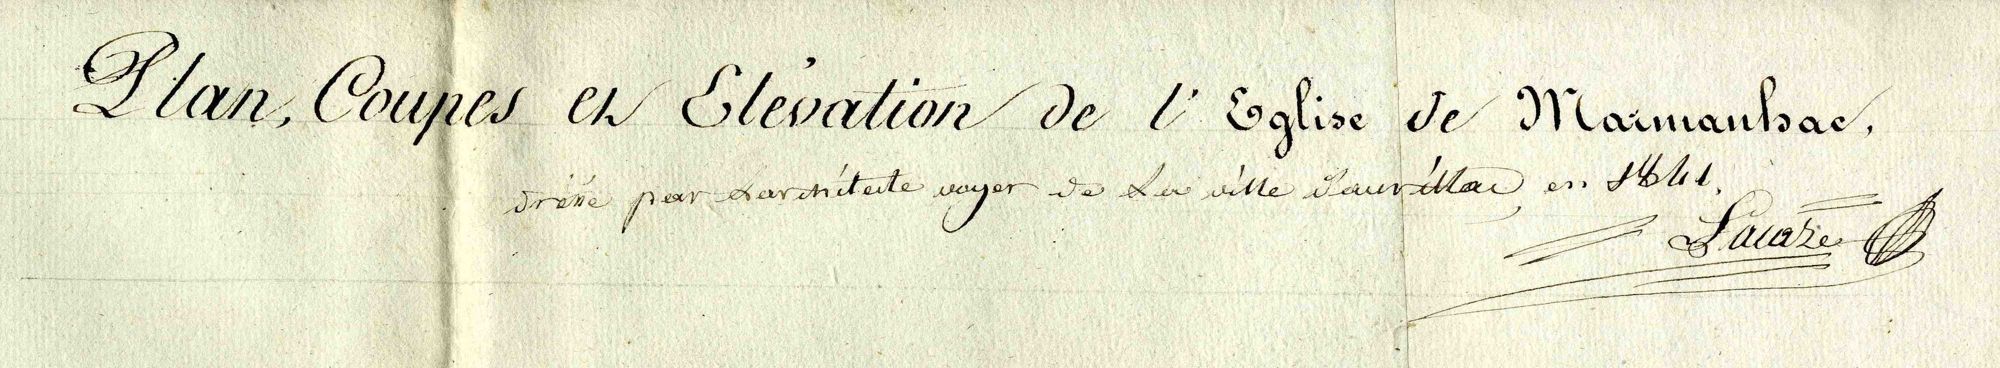 Plan, Coupes et Elévation de l'Eglise de Marmanhac,
dréssé par L'architecte voyer de La ville d'aurillac, en 1841.
Lacaze